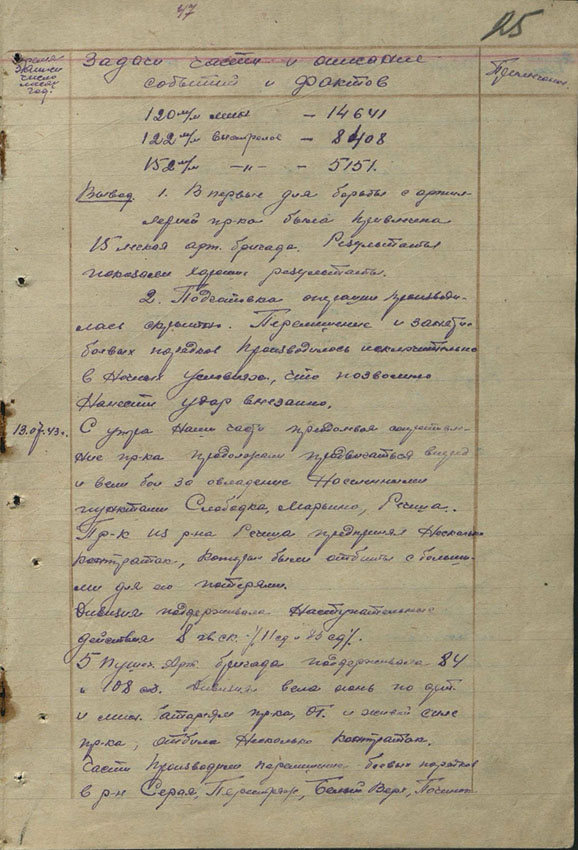 47
25
Время
число
год.
Задачи части и описание
событий и фактов
Примечание
120 м/м мин – 14641
122 м/м выстрелов – 8408
152 м/м –"– – 5151.
Вывод. 1. Впервые для борьбы с артил-
лерией пр-ка была привлечена
15 легкая арт. бригада. Результаты
показали хорошие результаты.
2. Подготовка операции производи-
лась скрытно. Перемещение и занятие
боевых порядков производилось исключительно
в ночных условиях, что позволило
нанести удар внезапно.
13.07.43г.
С утра наши части преодолевая сопротивле-
ние пр-ка продолжали продвигаться вперед
и вели бои за овладение населенными
пунктами Слободка, Марьино, Речица.
Пр-к из р-на Речица предпринял несколько
контратак, которые были отбиты с больши-
ми для его потерями.
Дивизия поддерживала наступательные
действия 8 гв. ск. /11 сд и 83 сд/.
5 Пушеч. Арт. бригада поддерживала 84
и 108 сд. Дивизия вела огонь по арт.
и мин. батареям пр-ка, ОТ. и живой силе
пр-ка, отбила несколько контратак.
Части производили перемещение боевых порядков
в р-н Серая, Перестряж, Белый Верх,